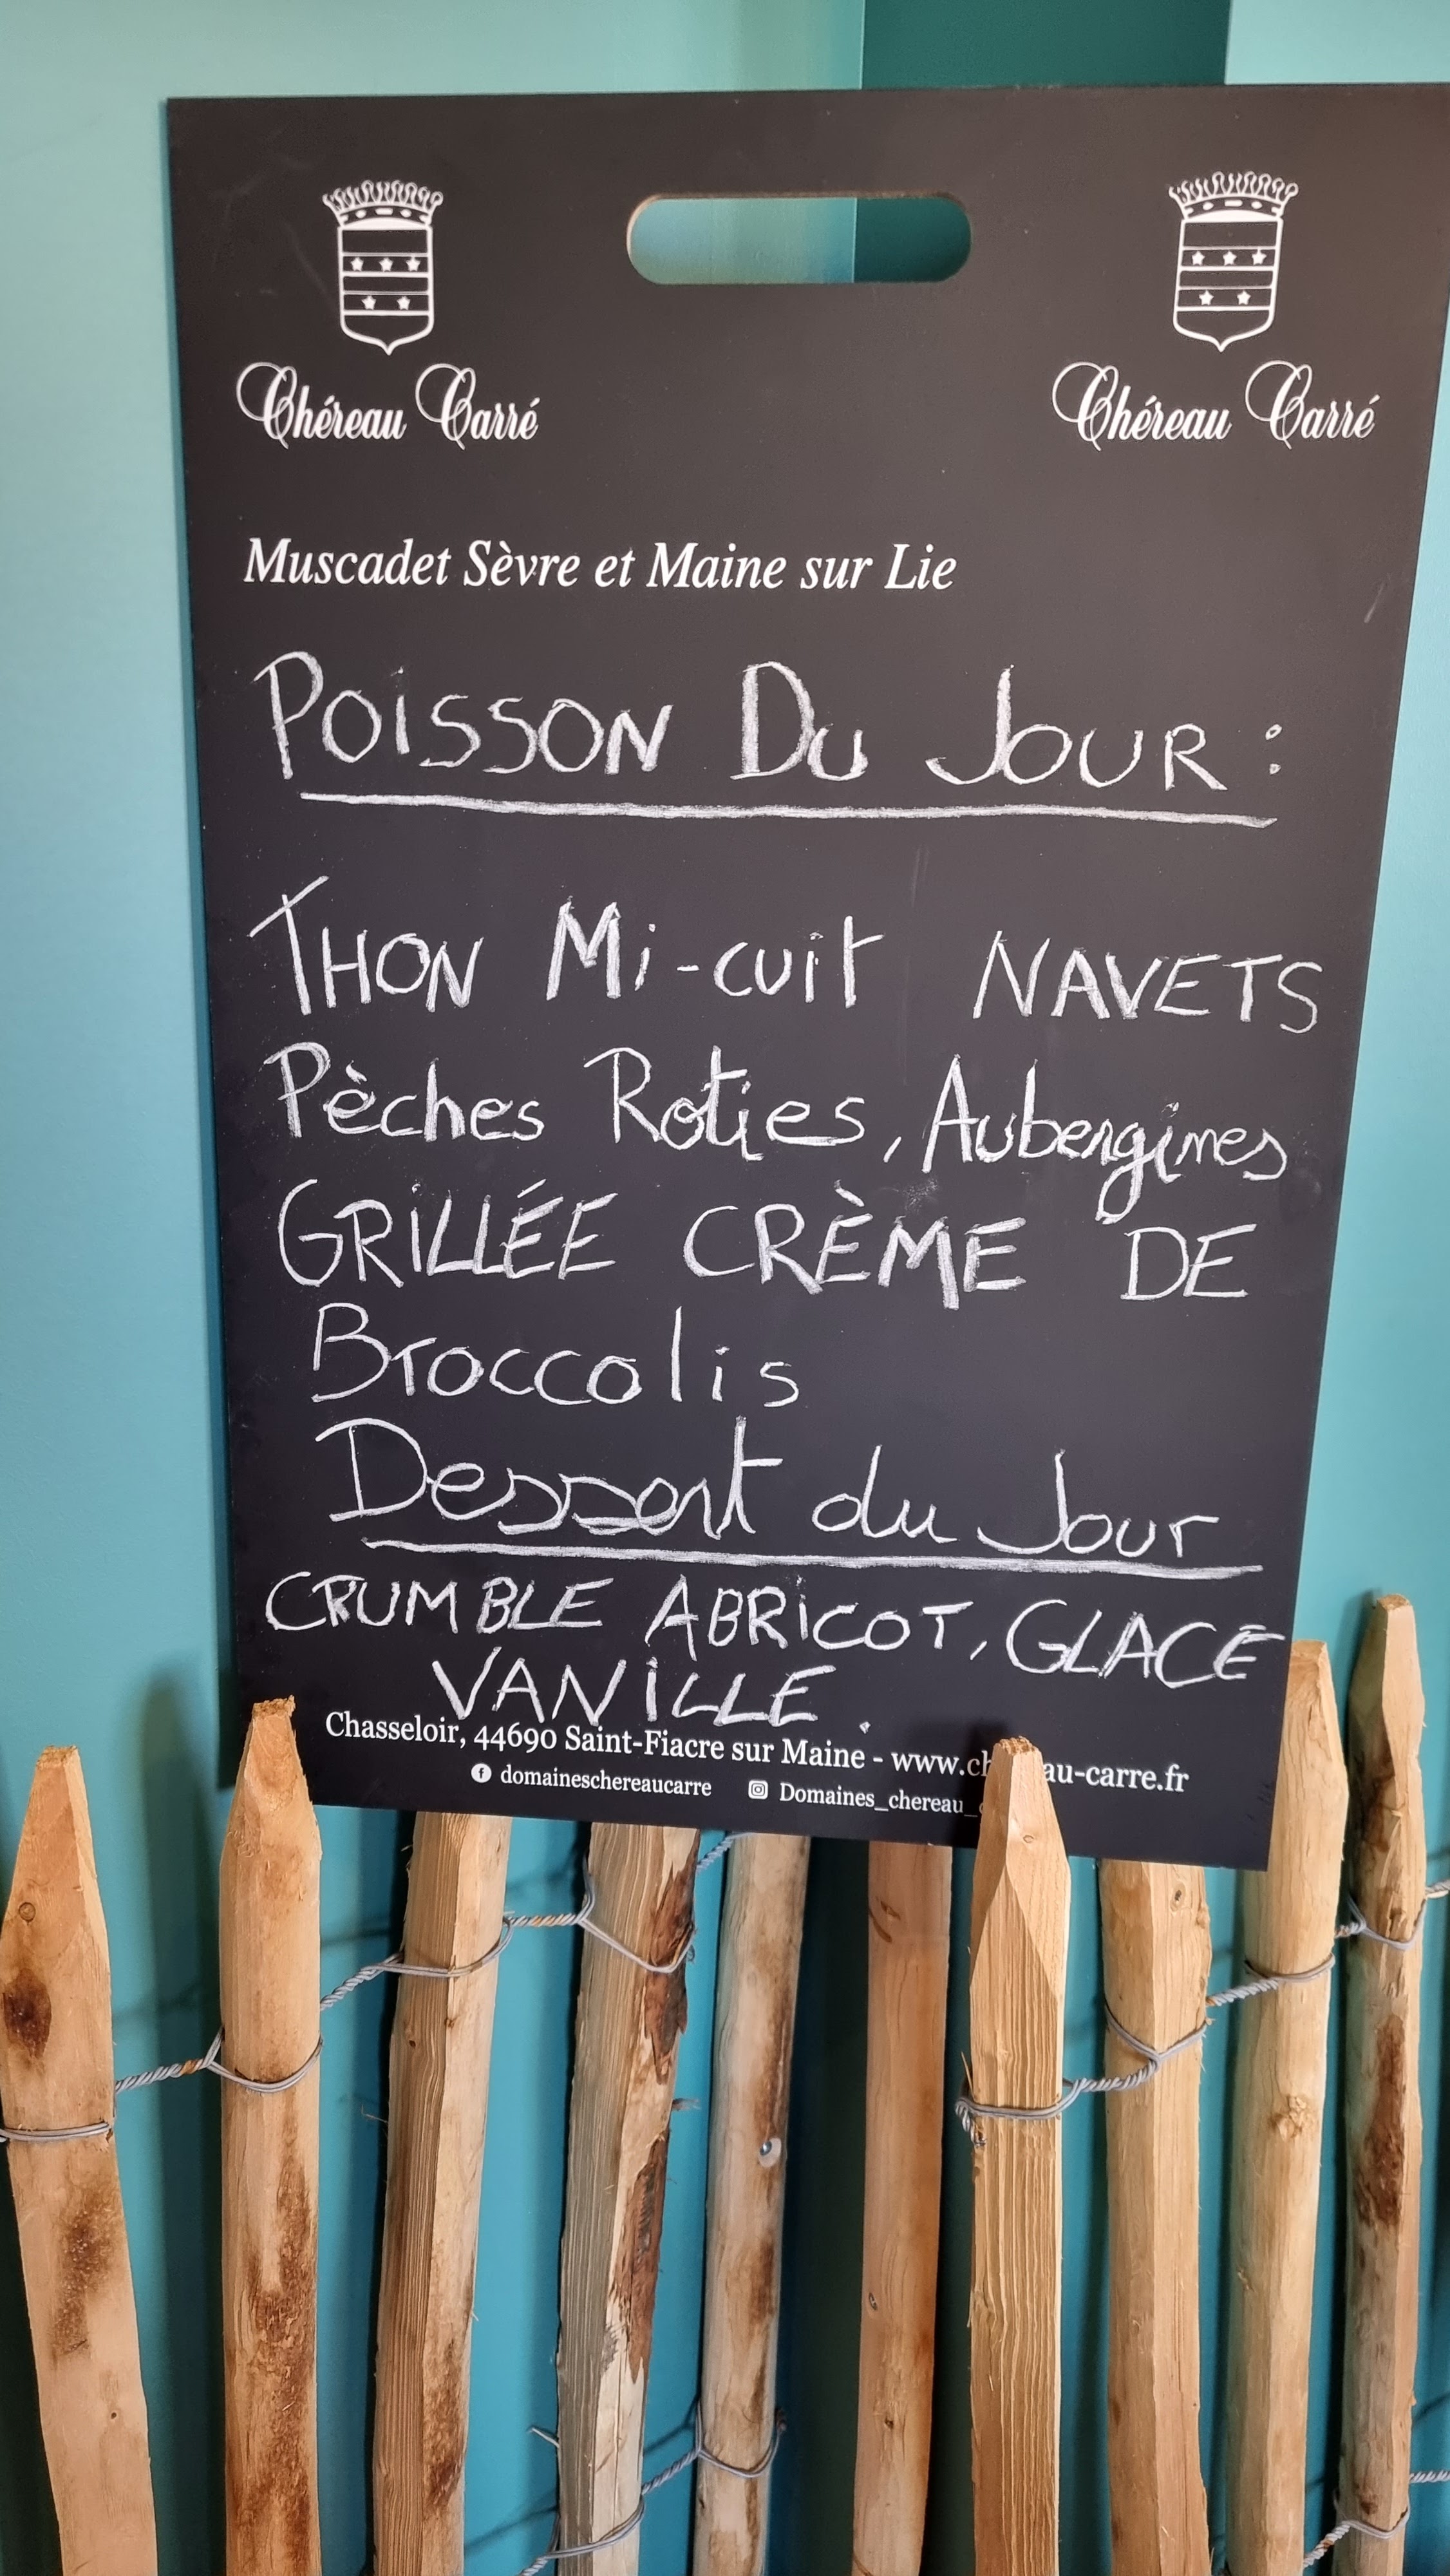 Chéreau Carré
Chéreau Carré
Muscadet Sèvre et Maine sur Lie
POISSON DU JOUR :
THON Mi-cuit NAVETS
Pèches Roties, Aubergines
GRILLÉE CRÈME DE
Broccolis
Dessert du Jour
CRUMBLE ABRICOT, GLACE
VANILLE .
Chasseloir, 44690 Saint-Fiacre sur Maine - www.ch au-carre.fr
domaineschereaucarre Domaines_chereau_